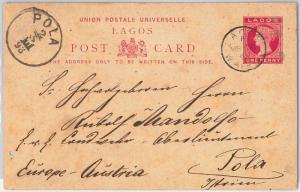 UNION POSTALE UNIVERSELLE
LAGOS
POST CARD
THE ADDRESS ONLY TO BE WRITTEN ON THIS SIDE.
POLA
LAGOS
ONE PENNY
Sr. Hochgeboren Herrn
Rudolf Mandolfo
Oberlieutenant
Europe-Austria
Pola
Istrien